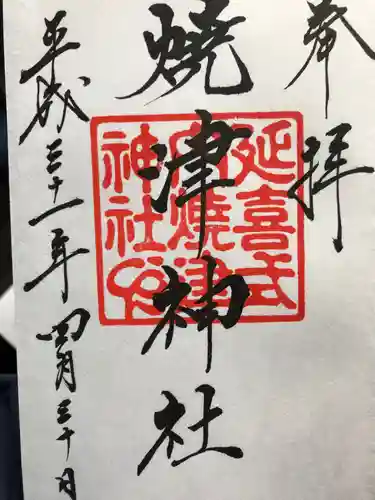 奉拝
燒津神社
延喜式
内燒津
神社印
平成三十一年四月三十日